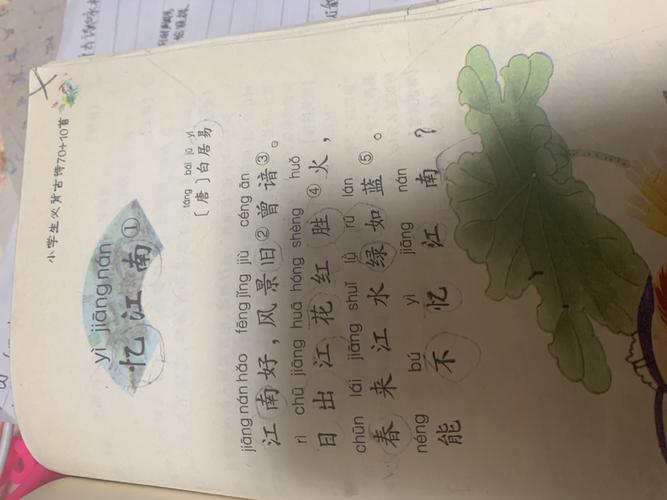 小学生必背古诗70+10首
yì jiāng nán
忆江南①
táng bái jū yì
〔唐〕白居易
jiāng nán hǎo fēng jǐng jiù céng ān
江南好，风景旧②曾谙③。
rì chū jiāng huā hóng shèng huǒ
日出江花红胜④火，
chūn lái jiāng shuǐ lǜ rú lán
春来江水绿如蓝⑤。
néng bú yì jiāng nán
能不忆江南？